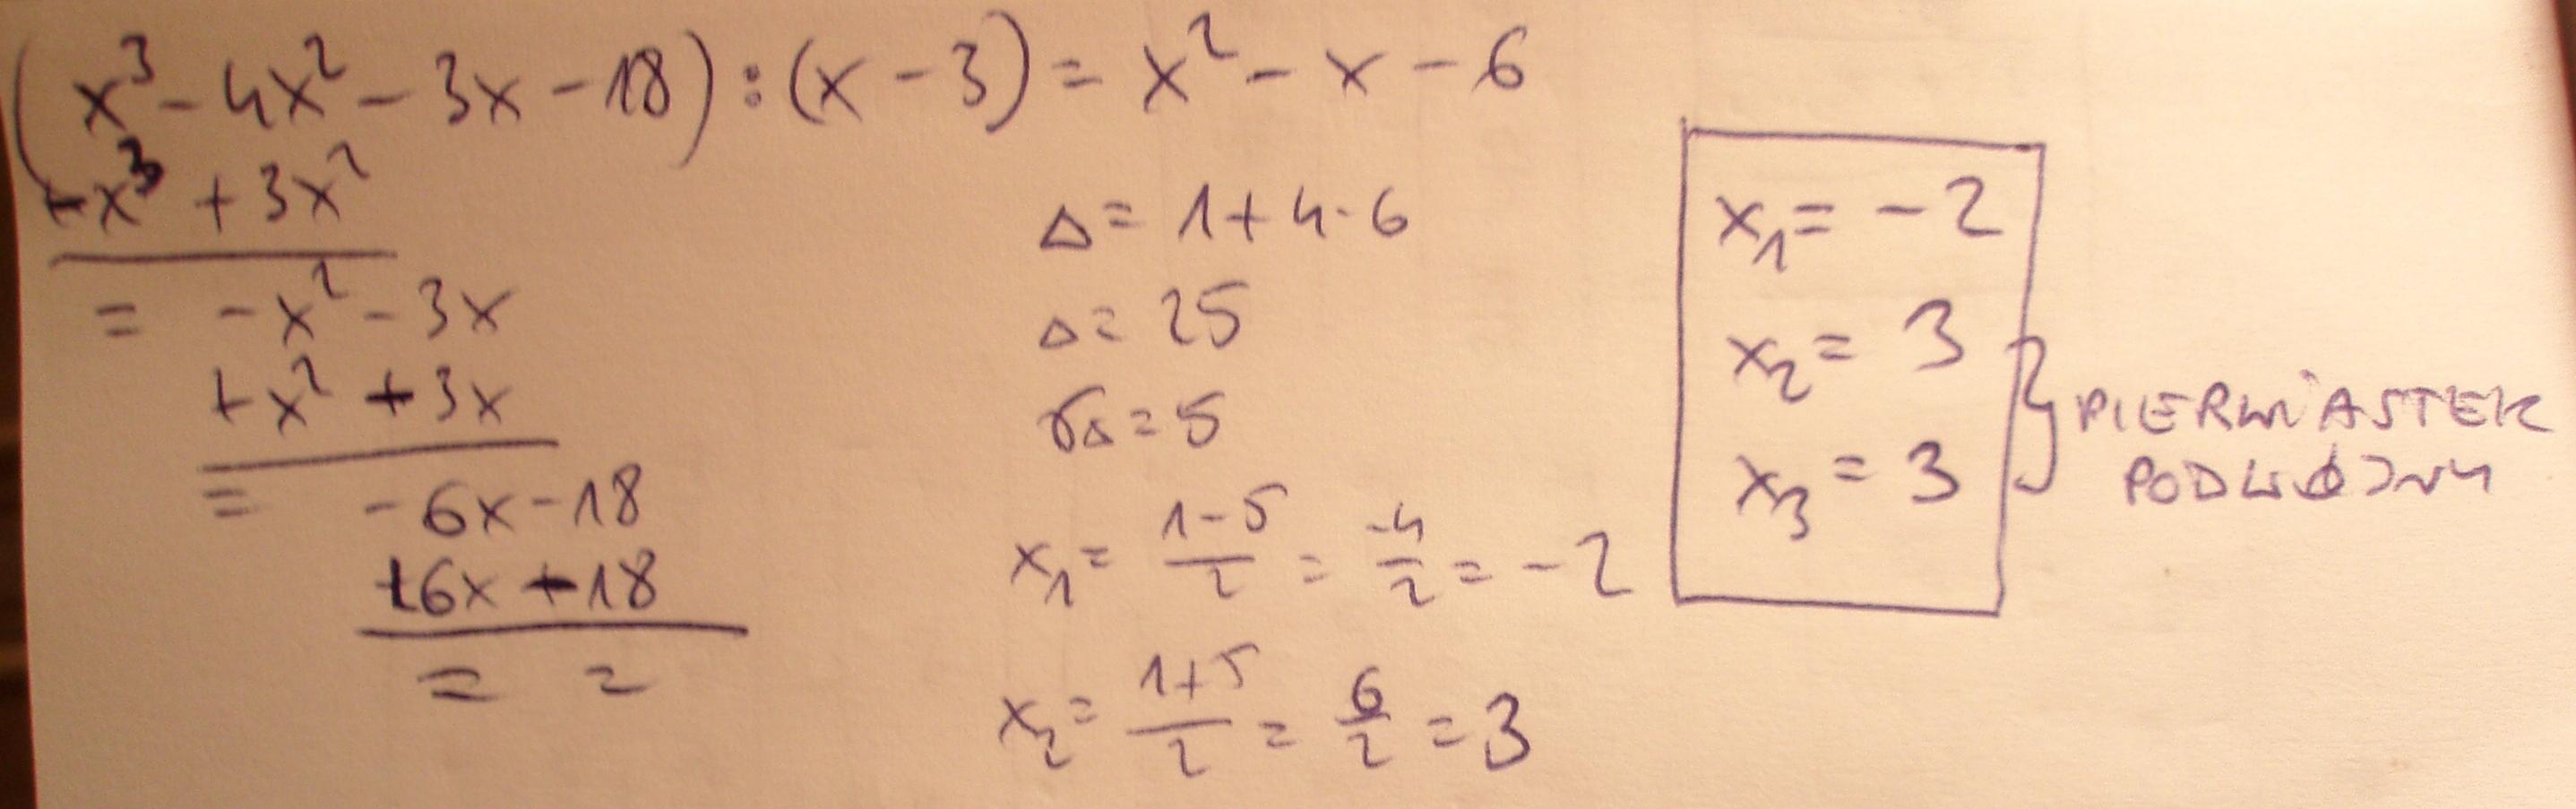 (x³ - 4x² - 3x - 18) : (x - 3) = x² - x - 6
+x³ + 3x²
= -x² - 3x
+x² + 3x
= -6x - 18
+6x + 18
= =
Δ = 1 + 4 · 6
Δ = 25
√Δ = 5
x₁ = (1-5)/2 = -4/2 = -2
x₂ = (1+5)/2 = 6/2 = 3
x₁ = -2
x₂ = 3
x₃ = 3
PIERWIASTEK
PODWÓJNY